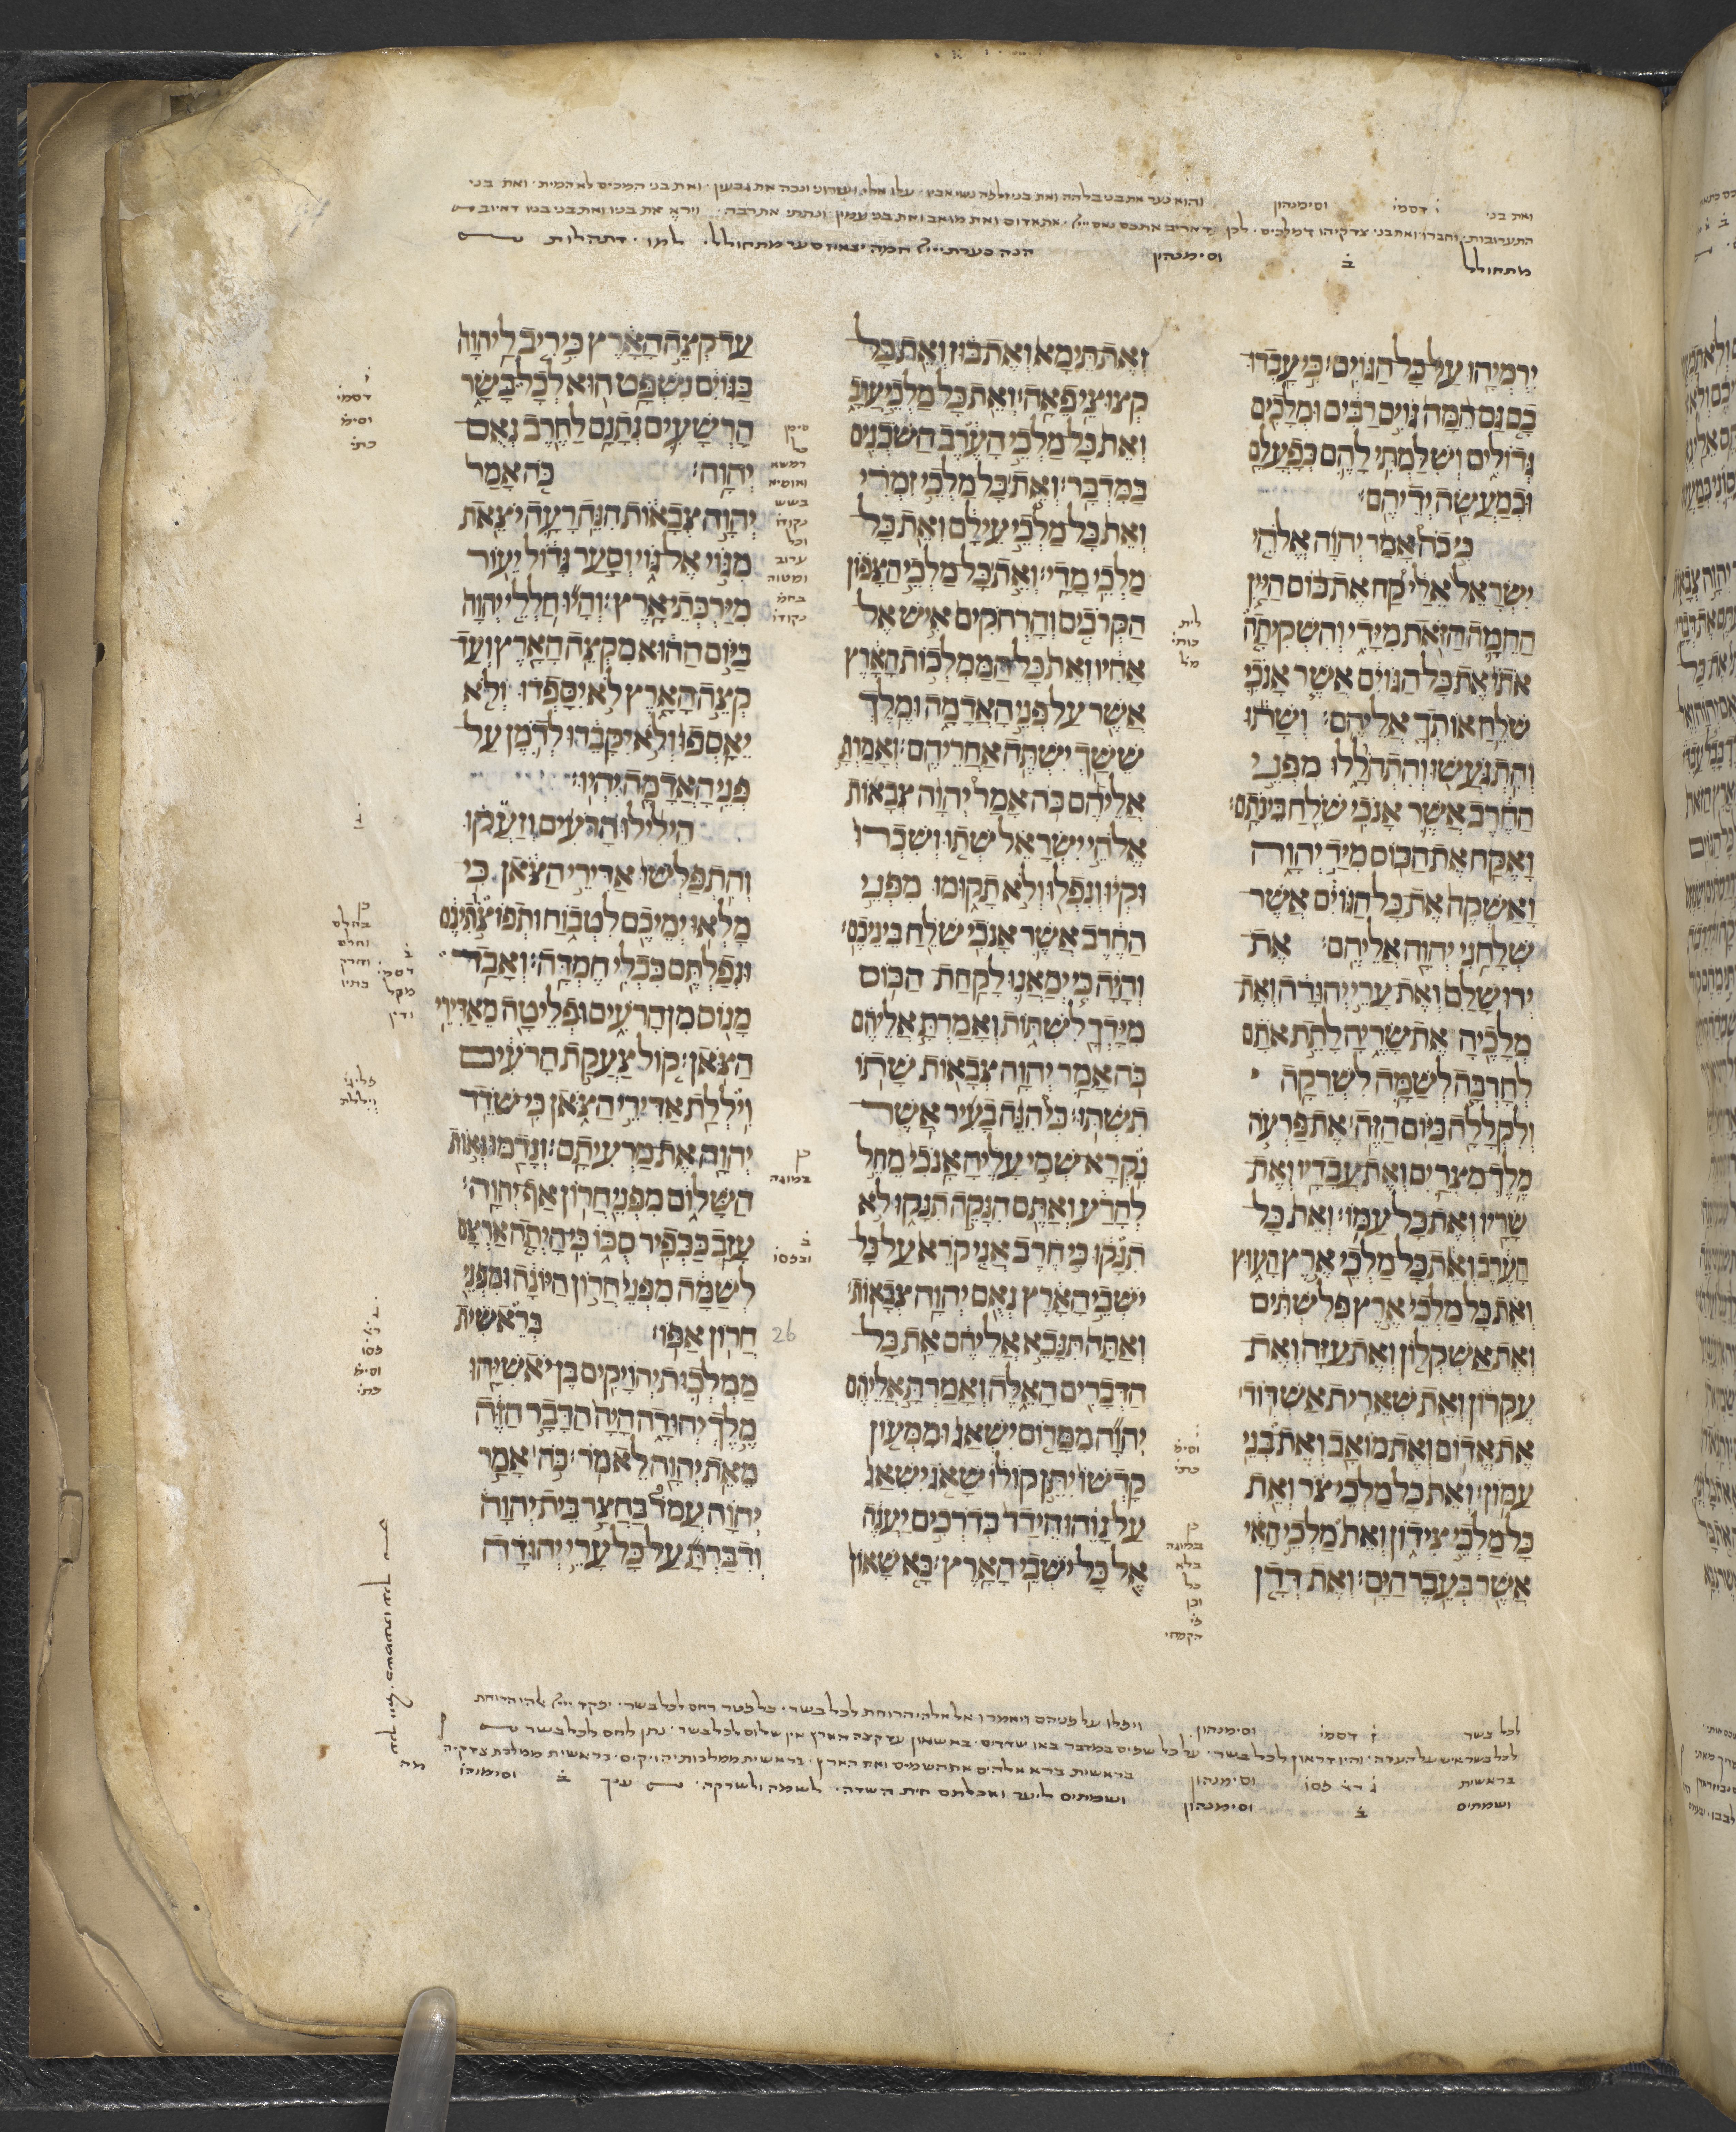 מתחולל ב וסימנהון הנה סערת ייי חמה יצאה וסער מתחולל
ירמיהו על כל הגוים כי עבדו
בם גם המה גוים רבים ומלכים
גדולים ושלמתי להם כפעלם
וכמעשה ידיהם
כי כה אמר יהוה אלהי
ישראל אלי קח את כוס היין
החמה הזאת מידי והשקיתה
אתו את כל הגוים אשר אנכי
שלח אותך אליהם ושתו
והתגעשו והתהללו מפני
החרב אשר אנכי שלח בינתם
ואקח את הכוס מיד יהוה
ואשקה את כל הגוים אשר
שלחני יהוה אליהם את
ירושלם ואת ערי יהודה ואת
מלכיה את שריה לתת אתם
לחרבה לשמה לשרקה
ולקללה כיום הזה את פרעה
מלך מצרים ואת עבדיו ואת
שריו ואת כל עמו ואת כל
הערב ואת כל מלכי ארץ העוץ
ואת כל מלכי ארץ פלשתים
ואת אשקלון ואת עזה ואת
עקרון ואת שארית אשדוד
את אדום ואת מואב ואת בני
עמון ואת כל מלכי צר ואת
כל מלכי צידון ואת מלכי האי
אשר בעבר הים ואת דדן
ואת תימא ואת בוז ואת כל
קצוצי פאה ואת כל מלכי ערב
ואת כל מלכי הערב השכנים
במדבר ואת כל מלכי זמרי
ואת כל מלכי עילם ואת כל
מלכי מדי ואת כל מלכי הצפון
הקרבים והרחקים איש אל
אחיו ואת כל הממלכות הארץ
אשר על פני האדמה ומלך
ששך ישתה אחריהם ואמרת
אליהם כה אמר יהוה צבאות
אלהי ישראל שתו ושכרו
וקיו ונפלו ולא תקומו מפני
החרב אשר אנכי שלח ביניכם
והיה כי ימאנו לקחת הכוס
מידך לשתות ואמרת אליהם
כה אמר יהוה צבאות שתו
תשתו כי הנה בעיר אשר
נקרא שמי עליה אנכי מחל
להרע ואתם הנקה תנקו לא
תנקו כי חרב אני קרא על כל
ישבי הארץ נאם יהוה צבאות
ואתה תנבא אליהם את כל
הדברים האלה ואמרת אליהם
יהוה ממרום ישאג וממעון
קדשו יתן קולו שאג ישאג
על נוהו הידד כדרכים יענה
אל כל ישבי הארץ בא שאון
עד קצה הארץ כי ריב ליהוה
בגוים נשפט הוא לכל בשר
הרשעים נתנם לחרב נאם
יהוה כה אמר
יהוה צבאות הנה רעה יצאת
מגוי אל גוי וסער גדול יעור
מירכתי ארץ והיו חללי יהוה
ביום ההוא מקצה הארץ ועד
קצה הארץ לא יספדו ולא
יאספו ולא יקברו לדמן על
פני האדמה יהיו
הילילו הרעים וזעקו
והתפלשו אדירי הצאן כי
מלאו ימיכם לטבוח ותפוצתיכם
ונפלתם ככלי חמדה ואבד
מנוס מן הרעים ופליטה מאדירי
הצאן קול צעקת הרעים
ויללת אדירי הצאן כי שדד
יהוה את מרעיתם ונדמו נאות
השלום מפני חרון אף יהוה
עזב ככפיר סכו כי היתה ארצם
לשמה מפני חרון היונה ומפני
חרון אפו בראשית
26
ממלכות יהויקים בן יאשיהו
מלך יהודה היה הדבר הזה
מאת יהוה לאמר כה אמר
יהוה עמד בחצר בית יהוה
ודברת על כל ערי יהודה
לכל בשר ז דסמי וסימנהון ויפלו על פניהם ויאמרו אל אלהי הרוחת לכל בשר כל פטר רחם לכל בשר יפקד ייי אלהי הרוחת
לכל בשר איש על העדה והיו דראון לכל בשר על כל שפים במדבר באו שדדים בא שאון עד קצה הארץ אין שלום לכל בשר נתן לחם לכל בשר
בראשית ג רא פסו וסימנהון בראשית ברא אלהים את השמים ואת הארץ בראשית ממלכות יהויקים בראשית ממלכת צדקיה
ושמתים ב וסימנהון ושמתים ליער ואכלתם חית השדה